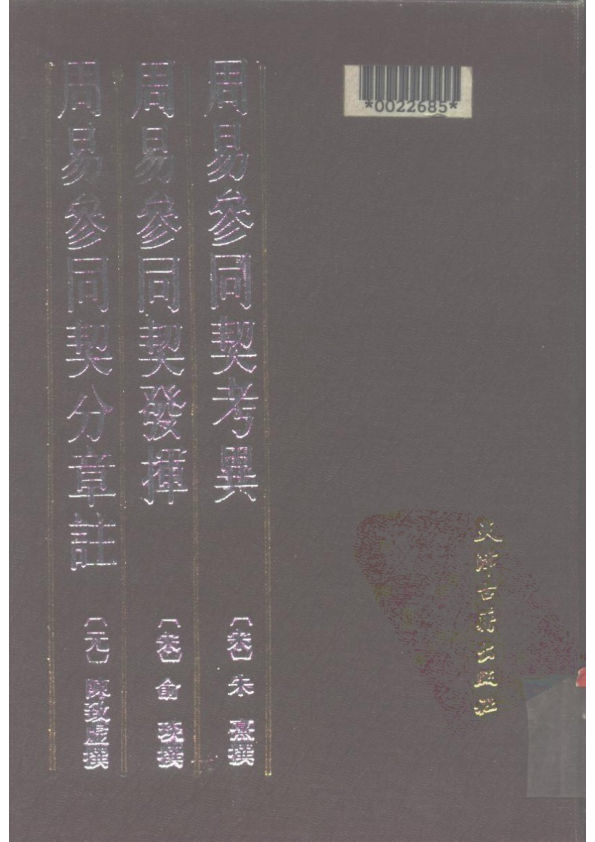 *0022685*
周易參同契考異
〔宋〕朱熹撰
周易參同契發揮
〔宋〕俞琰撰
周易參同契分章註
〔元〕陳致虛撰
天津古籍出版社